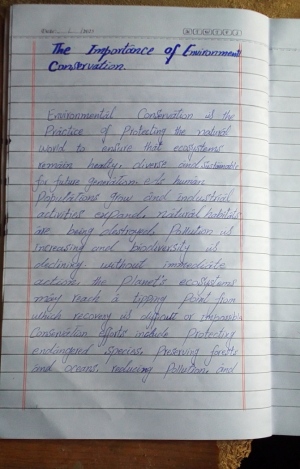 The Importance of Environment
Conservation.
Environmental Conservation is the
Practice of Protecting the natural
world to ensure that ecosystems
remain healty, diverse and sustainable
for future generation. As human
Populations grow and industrial
activities expand, natural habitats
are being destroyed. Pollution is
increasing and biodiversity is
declining without immediate
action, the Planet's ecosystems
may reach a tipping point from
which recovery is difficult or impossible
Conservation efforts include Protecting
endangered species, Preserving forests
and oceans, reducing Pollution, and